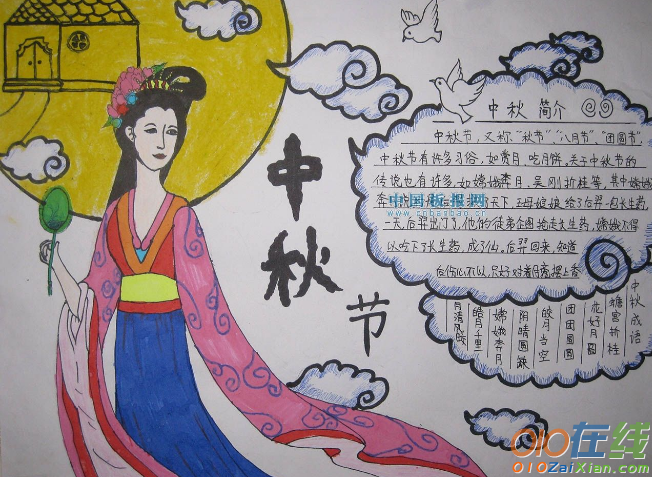 中秋节
中秋简介
中秋节，又称"秋节"、"八月节"、"团圆节"，
中秋节有许多习俗，如赏月、吃月饼，关于中秋节的
传说也有许多，如嫦娥奔月，吴刚折桂等，其中嫦娥
奔 天下，王母娘娘给了后羿一包长生药，
一天，后羿出门了，他的徒弟企图抢走长生药，嫦娥不得
以吃下了长生药，成了仙。后羿回来，知道
后伤心不以，只好对着月亮摆上香
中国板报网
www.cnbanbao.cn
中秋成语
蟾宫折桂
花好月圆
团团圆圆
皎月当空
阴晴圆缺
嫦娥奔月
皓月千里
月清风皎
010在线
010ZaiXian.com